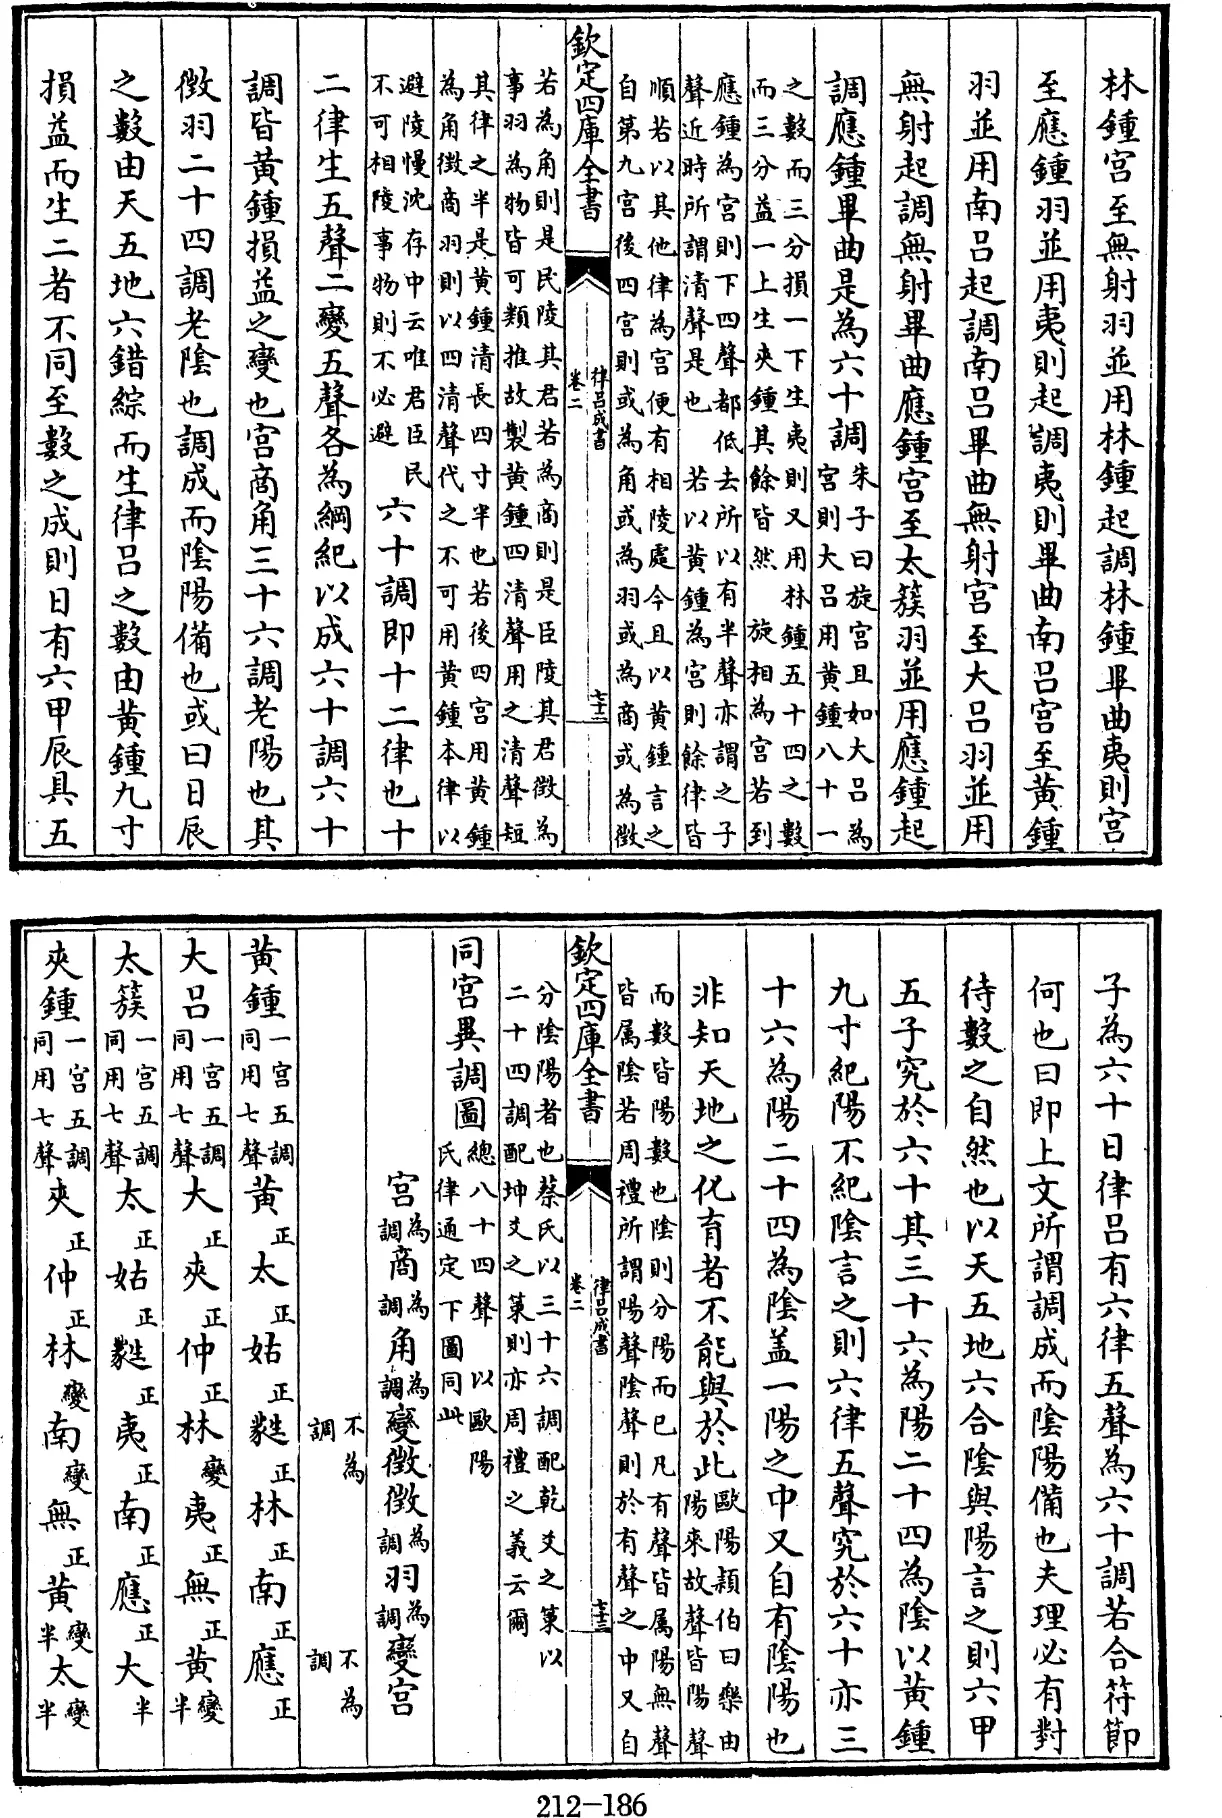 林鍾宮至無射羽並用林鍾起調林鍾畢曲夷則宮
至應鍾羽並用夷則起調夷則畢曲南呂宮至黃鍾
羽並用南呂起調南呂畢曲無射宮至大呂羽並用
無射起調無射畢曲應鍾宮至太蔟羽並用應鍾起
調應鍾畢曲是為六十調朱子曰旋宮且如大呂為
宮則大呂用黃鍾八十一
之數而三分損一下生夷則又用林鍾五十四之數
而三分益一上生夾鍾其餘皆然 旋相為宮若到
應鍾為宮則下四聲都低去所以有半聲亦謂之子
聲近時所謂清聲是也 若以黃鍾為宮則餘律皆
順若以其他律為宮便有相陵處今且以黃鍾言之
自第九宮後四宮則或為角或為羽或為商或為徵
欽定四庫全書
律呂成書
卷二
七十二
若為角則是民陵其君若為商則是臣陵其君徵為
事羽為物皆可類推故製黃鍾四清聲用之清聲短
其律之半是黃鍾清長四寸半也若後四宮用黃鍾
為角徵商羽則以四清聲代之不可用黃鍾本律以
避陵慢沈存中云唯君臣民
不可相陵事物則不必避
六十調即十二律也十
二律生五聲二變五聲各為綱紀以成六十調六十
調皆黃鍾損益之變也宮商角三十六調老陽也其
徵羽二十四調老陰也調成而陰陽備也或曰日辰
之數由天五地六錯綜而生律呂之數由黃鍾九寸
損益而生二者不同至數之成則日有六甲辰具五
子為六十日律呂有六律五聲為六十調若合符節
何也曰即上文所謂調成而陰陽備也夫理必有對
待數之自然也以天五地六合陰與陽言之則六甲
五子究於六十其三十六為陽二十四為陰以黃鍾
九寸紀陽不紀陰言之則六律五聲究於六十亦三
十六為陽二十四為陰蓋一陽之中又自有陰陽也
非知天地之化育者不能與於此歐陽穎伯曰樂由
陽來故聲皆陽聲
而數皆陽數也陰則分陽而已凡有聲皆属陽無聲
皆属陰若周禮所謂陽聲陰聲則於有聲之中又自
欽定四庫全書
律呂成書
卷二
七十三
分陰陽者也蔡氏以三十六調配乾爻之策以
二十四調配坤爻之策則亦周禮之義云爾
同宮異調圖總八十四聲 以歐陽
氏律通定下圖同此
宮為調商為調角為調變徵徵為調羽為調變宮
不為調 不為調
黃鍾一宮五調同用七聲黃正太正姑正蕤正林正南正應正
大呂一宮五調同用七聲大正夾正仲正林變夷正無正黃變半
太蔟一宮五調同用七聲太正姑正蕤正夷正南正應正大半
夾鍾一宮五調同用七聲夾正仲正林變南變無正黃變半太變半
212-186